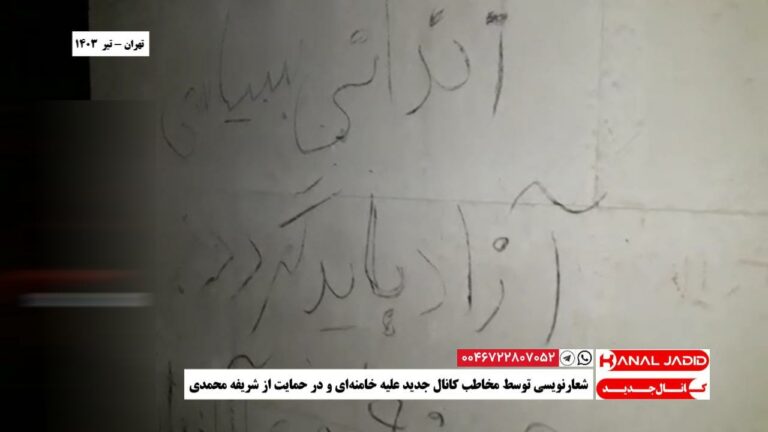 تهران – تیر ۱۴۰۳
زندانی سیاسی
آزاد باید گردد
۰۰۴۶۷۲۲۸۰۷۰۵۲
KANAL JADID
کانال جدید
شعارنویسی توسط مخاطب کانال جدید علیه خامنه‌ای و در حمایت از شریفه محمدی